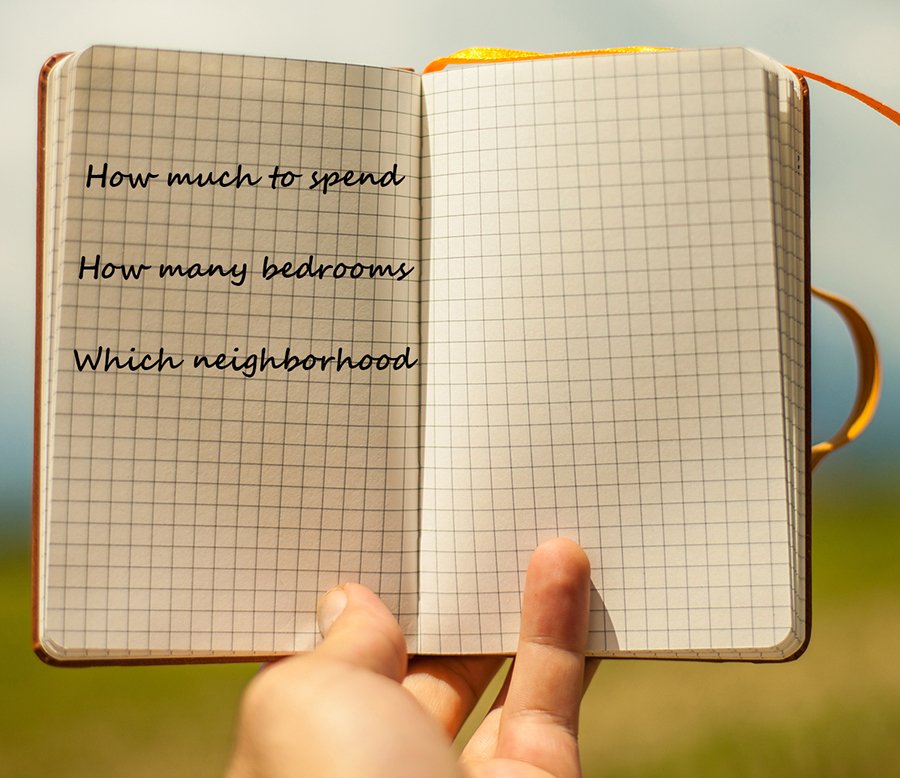 How much to spend
How many bedrooms
Which neighborhood